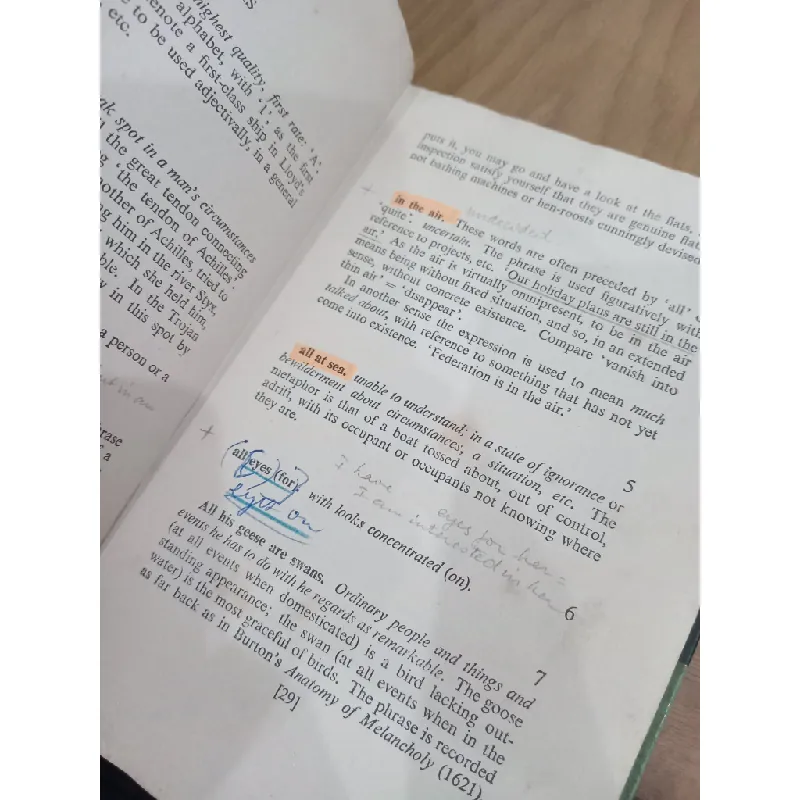 highest quality, first rate: 'A'
alphabet, with '1' as the first
denote a first-class ship in Lloyd's
to be used adjectivally, in a general
etc.
spot in a man's circumstances
the great tendon connecting
'the tendon of Achilles'.
mother of Achilles, tried to
him in the river Styx,
which she held him,
In the Trojan
in this spot by
a person or a
puts it, you may go and have a look at the flats,
inspection satisfy yourself that they are genuine flats
not bathing machines or hen-roosts cunningly devised
in the air. These words are often preceded by 'all'
undecided
'quite'. uncertain. The phrase is used figuratively with
reference to projects, etc. 'Our holiday plans are still in the
air.' As the air is virtually omnipresent, to be in the air
means being without fixed situation, and so, in an extended
sense, without concrete existence. Compare 'vanish into
thin air' = 'disappear'.
In another sense the expression is used to mean much
talked about, with reference to something that has not yet
come into existence. 'Federation is in the air.'
5
all at sea. unable to understand; in a state of ignorance or
bewilderment about circumstances, a situation, etc. The
metaphor is that of a boat tossed about, out of control,
adrift, with its occupant or occupants not knowing where
they are.
6
(all) eyes (for) with looks concentrated (on).
eyes on
I have eyes for her =
I am interested in her
7
All his geese are swans. Ordinary people and things and
events he has to do with he regards as remarkable. The goose
(at all events when domesticated) is a bird lacking out-
standing appearance; the swan (at all events when in the
water) is the most graceful of birds. The phrase is recorded
as far back as in Burton's Anatomy of Melancholy (1621).
[29]